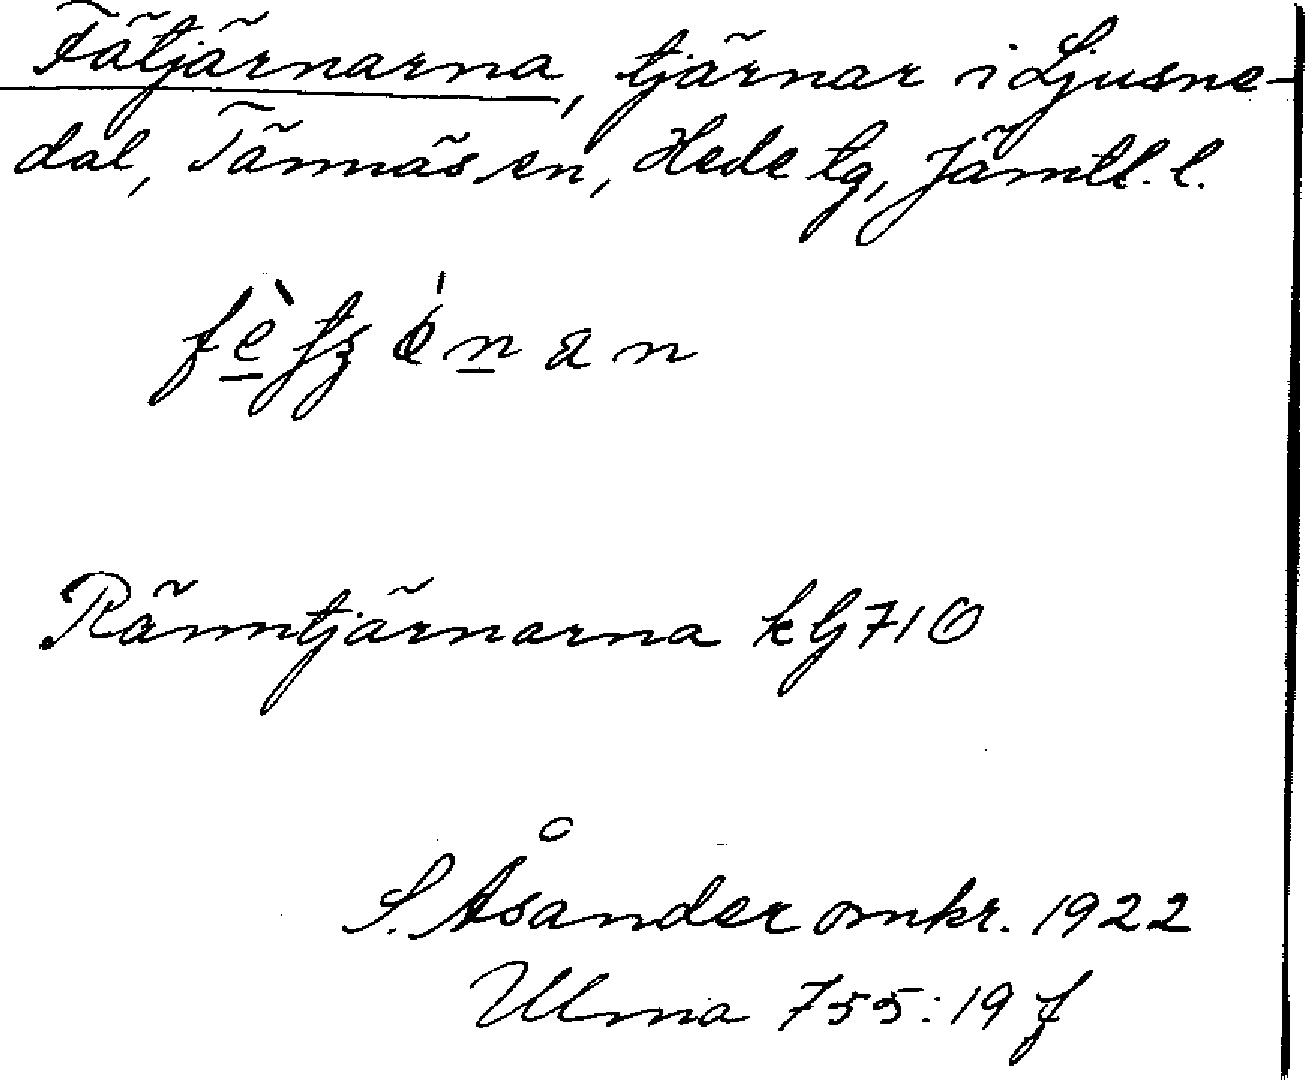 Fätjärnarna, tjärnar i Ljusne-
dal, Tännäs sn, Hede tg, Jämtl. l.
Ränntjärnarna k G 710
S. Åsander omkr. 1922
Ulma 755:19 f